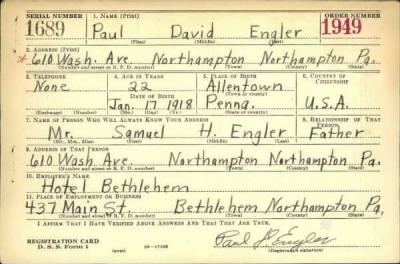 SERIAL NUMBER 1. NAME (Print) ORDER NUMBER
1689 Paul David Engler 1949
(First) (Middle) (Last)
2. ADDRESS (Print)
* 610 Wash. Ave Northampton Northampton Pa.
(Number and street or R. F. D. number) (Town) (County) (State)
3. TELEPHONE 4. AGE IN YEARS 5. PLACE OF BIRTH 6. COUNTRY OF CITIZENSHIP
None 22 Allentown
DATE OF BIRTH (Town or county)
Jan. 17 1918 Penna. U.S.A.
(Exchange) (Number) (Mo.) (Day) (Yr.) (State or country)
7. NAME OF PERSON WHO WILL ALWAYS KNOW YOUR ADDRESS 8. RELATIONSHIP OF THAT PERSON
Mr. Samuel H. Engler Father
(Mr., Mrs., Miss) (First) (Middle) (Last)
9. ADDRESS OF THAT PERSON
610 Wash. Ave. Northampton Northampton Pa.
(Number and street or R. F. D. number) (Town) (County) (State)
10. EMPLOYER'S NAME
Hotel Bethlehem
11. PLACE OF EMPLOYMENT OR BUSINESS
437 Main St. Bethlehem Northampton Pa.
(Number and street or R. F. D. number) (Town) (County) (State)
I AFFIRM THAT I HAVE VERIFIED ABOVE ANSWERS AND THAT THEY ARE TRUE.
REGISTRATION CARD
D. S. S. Form 1 (over) Paul D Engler
(Registrant's signature)